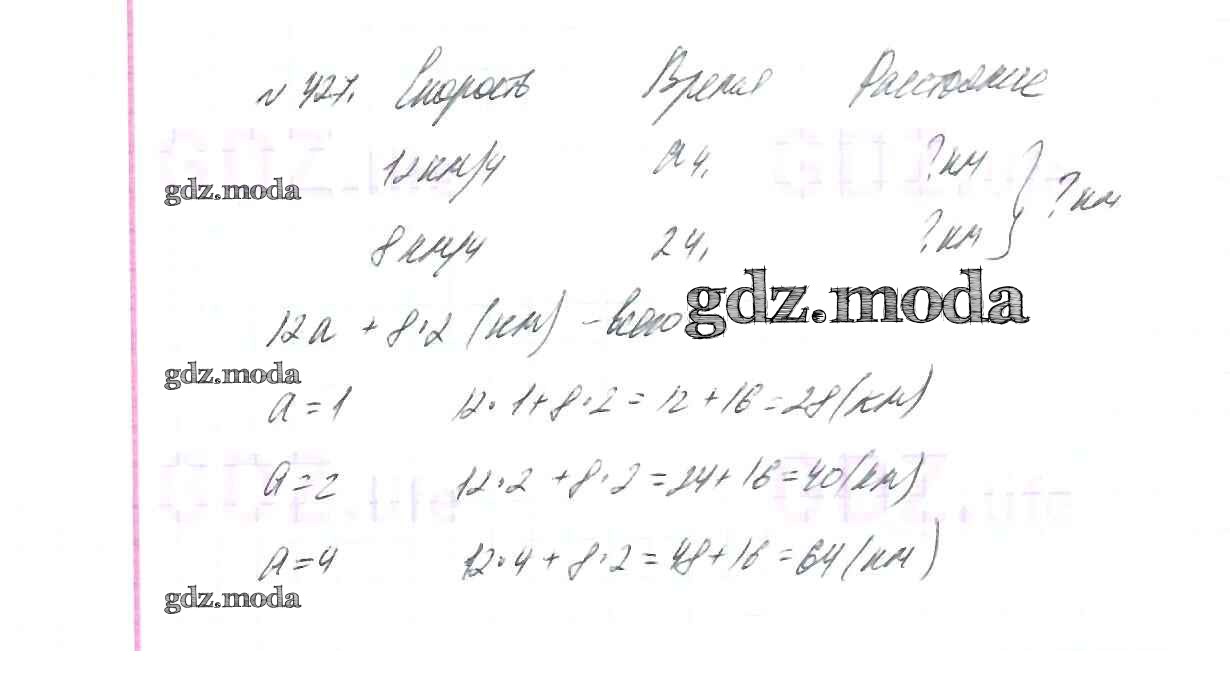 № 427. Скорость Время Расстояние
12 км/ч а ч. ? км
? км
8 км/ч 2 ч. ? км
12а + 8·2 (км) - всего
а = 1 12·1+8·2 = 12+16 = 28 (км)
а = 2 12·2 + 8·2 = 24+16 = 40 (км)
а = 4 12·4 + 8·2 = 48+16 = 64 (км)
gdz.moda
gdz.moda
gdz.moda
gdz.moda